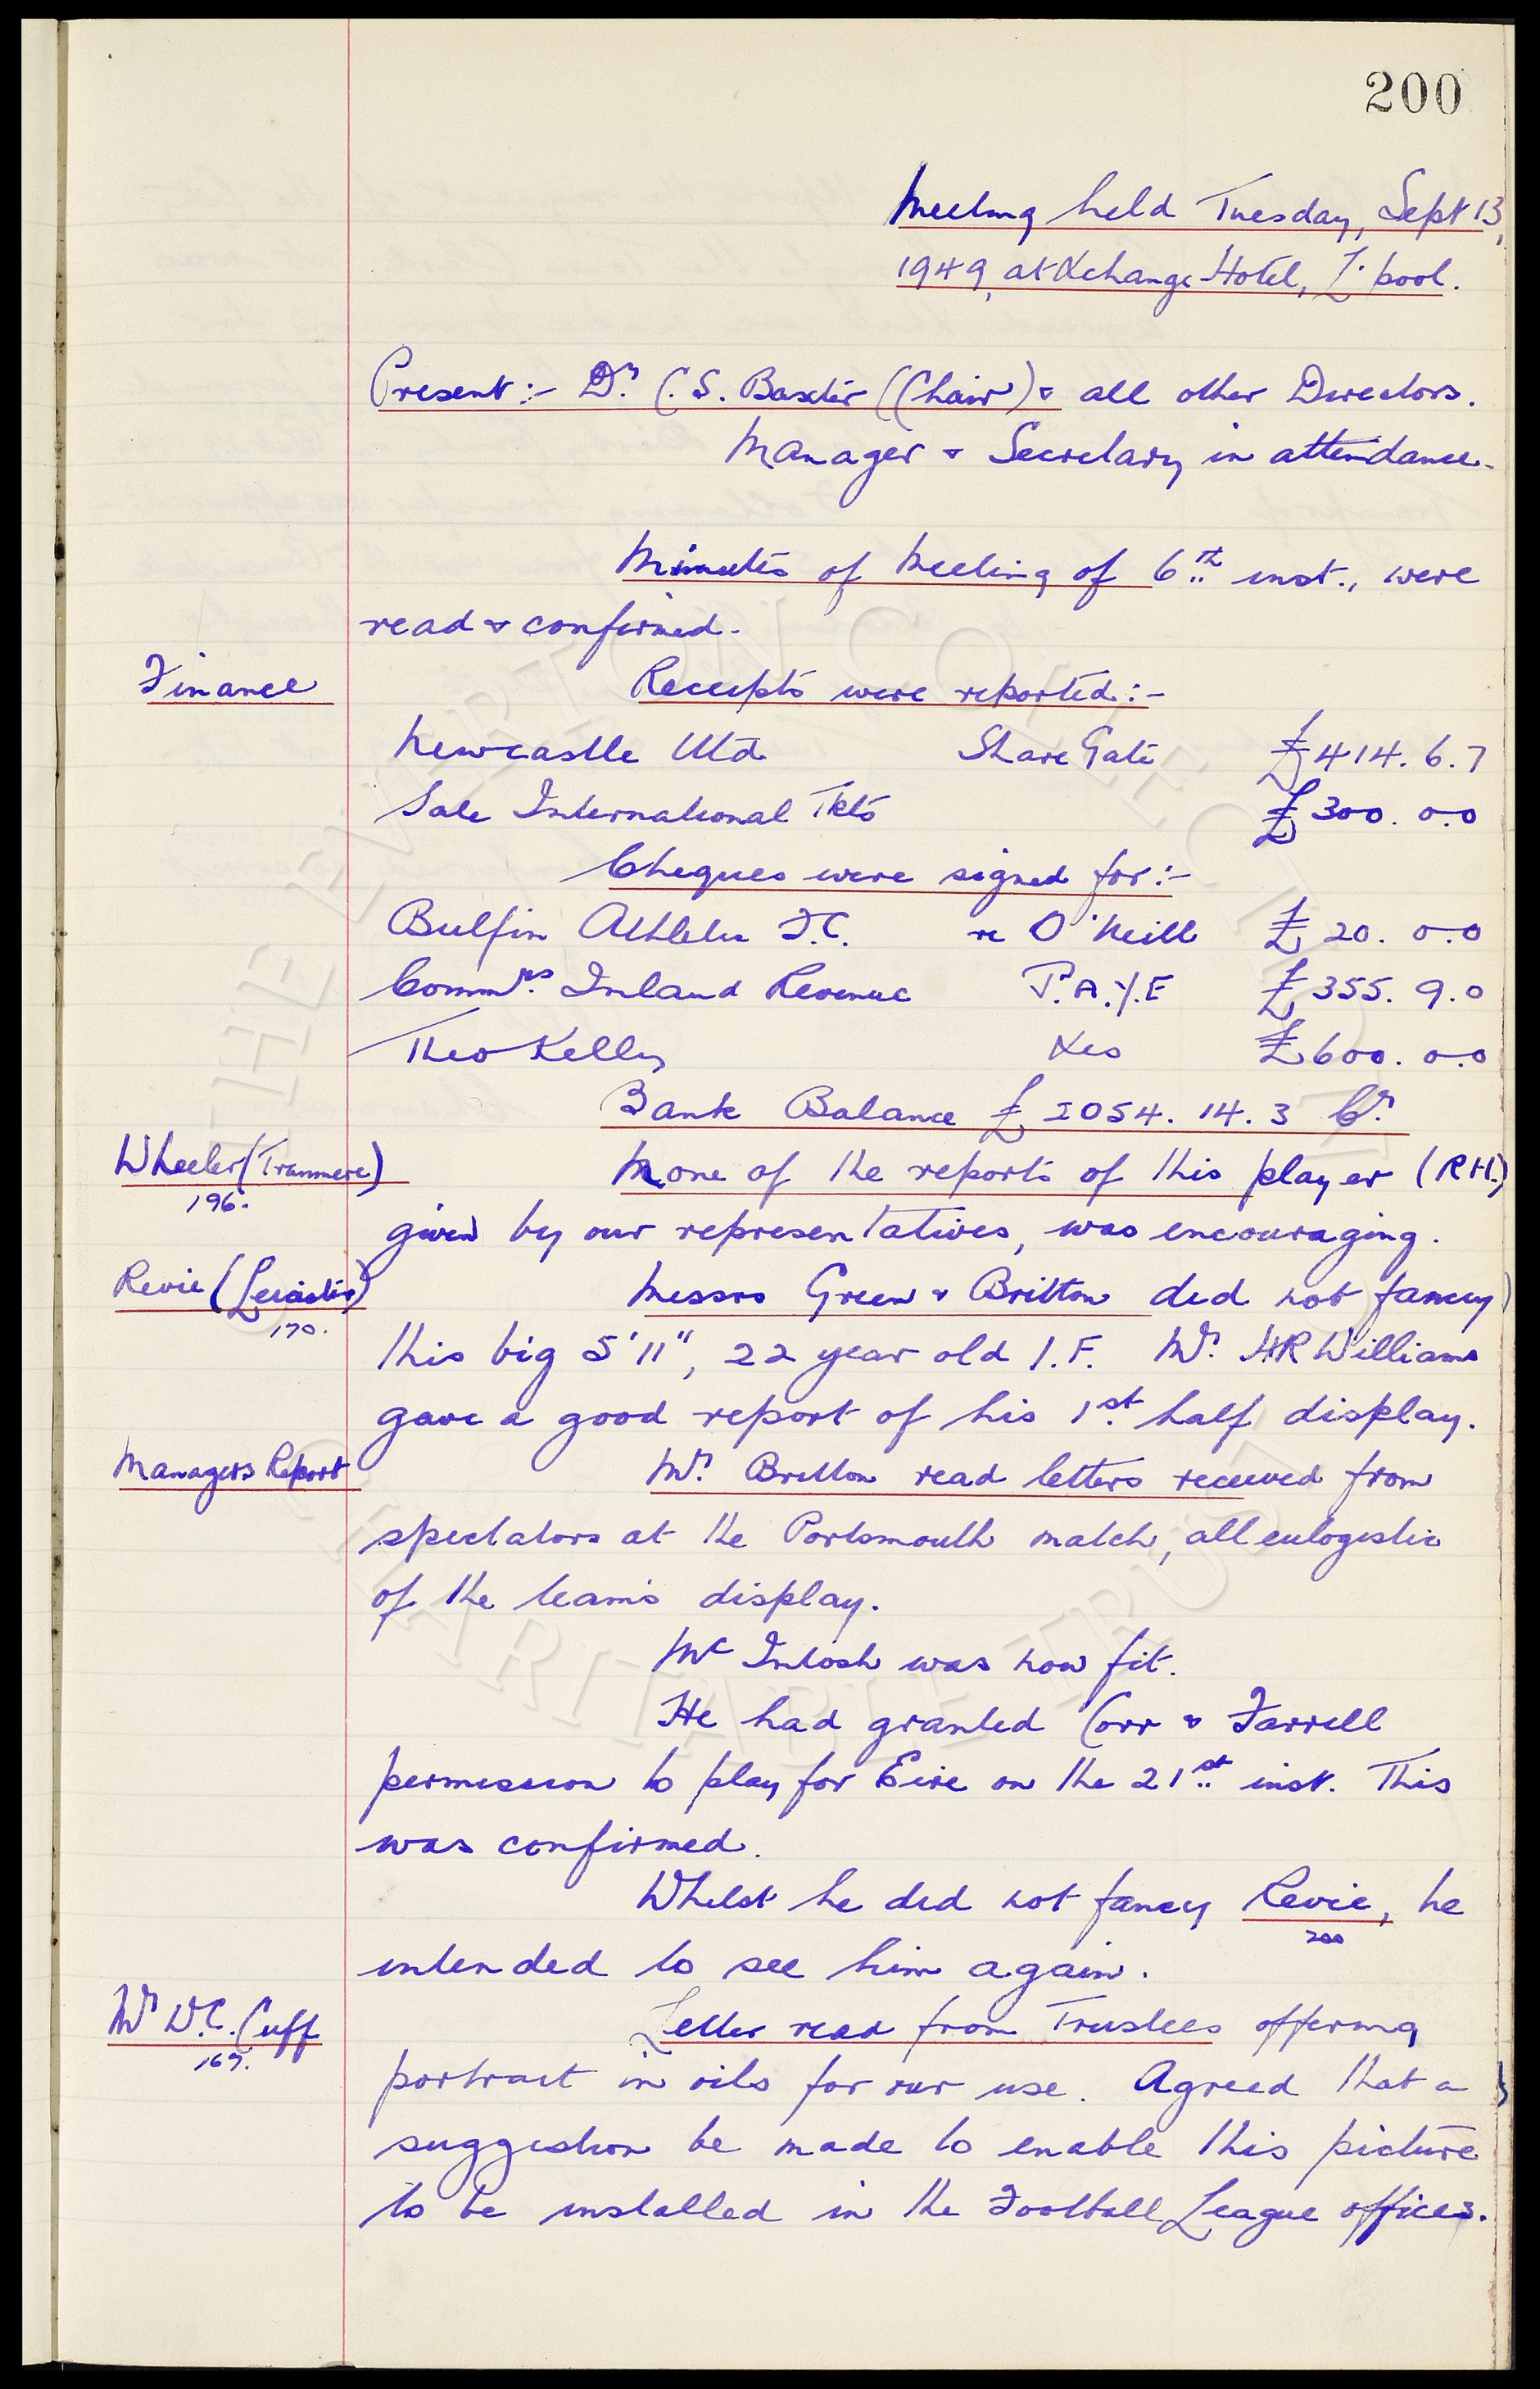 200
Meeting held Tuesday, Sept 13,
1949, at Xchange Hotel, L'pool.
Present:- Dr. C.S. Baxter (Chair) & all other Directors.
Manager & Secretary in attendance.
Minutes of Meeting of 6th inst., were
read & confirmed.
Finance Receipts were reported:-
Newcastle Utd Share Gate £414. 6. 7
Sale International Tkts £300. 0.0
Cheques were signed for:-
Bulfin Athletic F.C. re O'Neill £20. 0.0
Commrs. Inland Revenue P.A.Y.E £355. 9.0
Theo Kelly Xes £600. 0.0
Bank Balance £2054. 14. 3 Cr.
Wheeler (Tranmere) None of the reports of this player (R.H.)
196.
given by our representatives, was encouraging.
Revie (Leicester) Messrs Green & Britton did not fancy
170.
this big 5'11", 22 year old I.F. Mr. HR Williams
gave a good report of his 1st half display.
Managers Report Mr. Britton read letters received from
spectators at the Portsmouth match, all eulogistic
of the team's display.
McIntosh was now fit.
He had granted Corr & Farrell
permission to play for Eire on the 21st inst. This
was confirmed.
Whilst he did not fancy Revie, he
200
intended to see him again.
Mr W.C. Cuff Letter read from Trustees offering
167.
portrait in oils for our use. Agreed that a
suggestion be made to enable this picture
to be installed in the Football League offices.
THE EVERTON COLLECTION
CHARITABLE TRUST